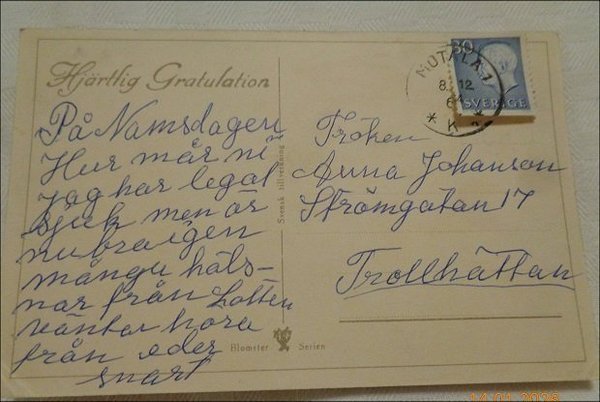 Hjärtlig Gratulation
På Namsdagen
Hur mår ni
Jag har legat
sjuk men är
nu bra igen
många häls-
nar från Lotten
väntar höra
från eder
snart
Svensk tillverkning
Blomster Serien
MOTALA 1
8. 12
61
* K *
30
SVERIGE
Fröken
Anna Johanson
Strömgatan 17
Trollhättan